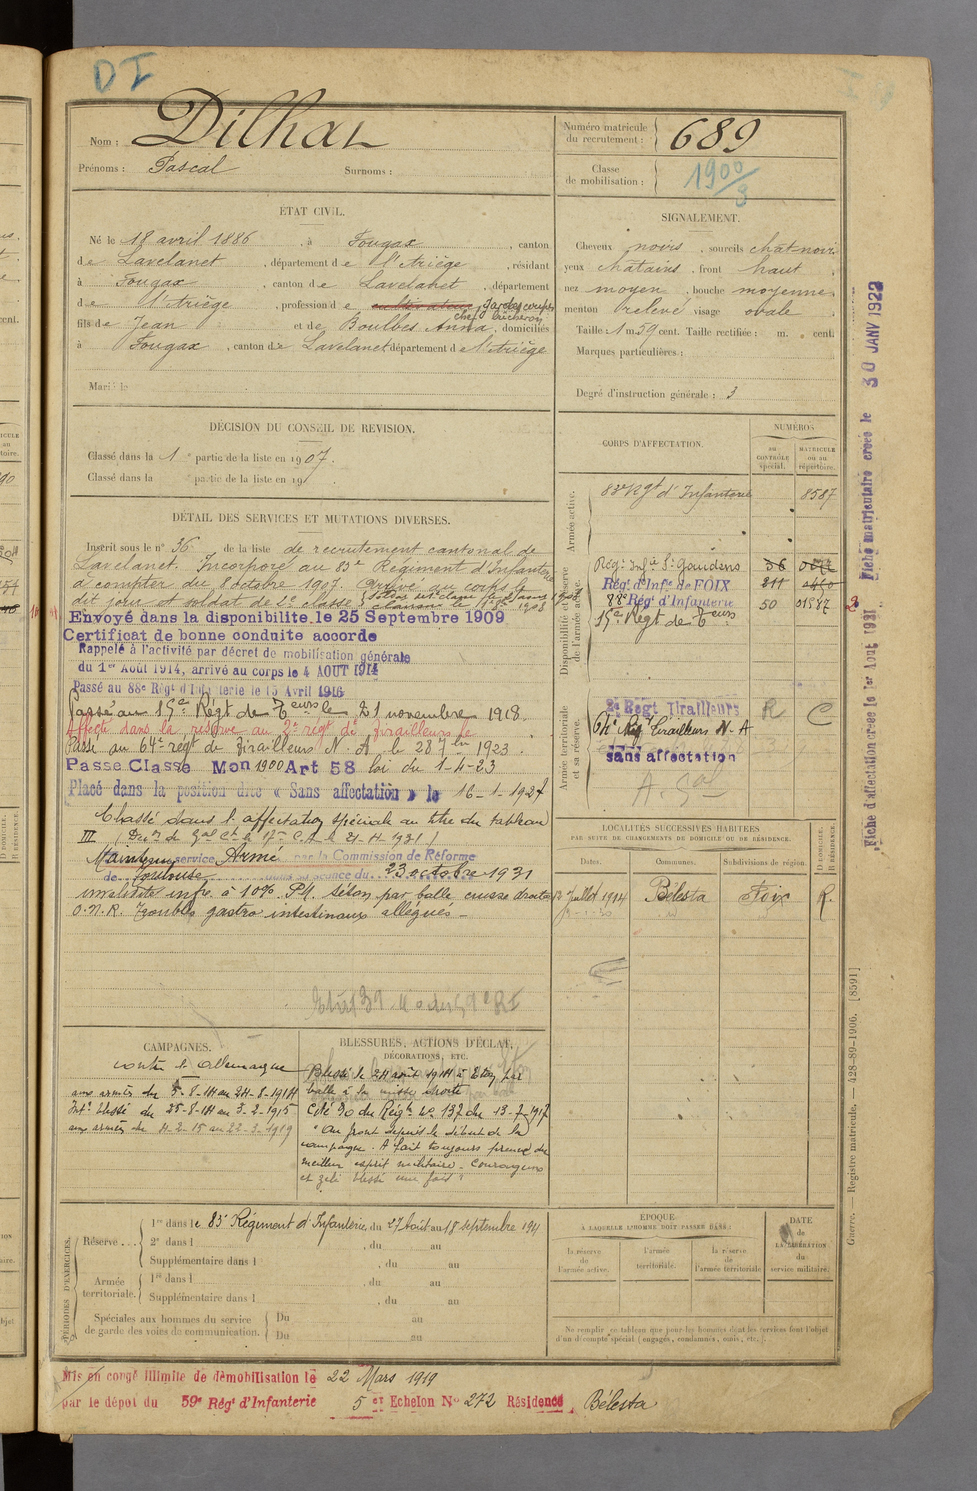 DI
Nom : Dilhat
Prénoms : Pascal Surnoms :
Numéro matricule du recrutement : 689
Classe de mobilisation : 1900/3
ÉTAT CIVIL.
Né le 18 avril 1886, à Fougax, canton
de Lavelanet, département de l'Ariège, résidant
à Fougax, canton de Lavelanet, département
de l'Ariège, profession de cultivateur garde coupes
chef bûcheron
fils de Jean et de Boulbès Anna, domiciliés
à Fougax, canton de Lavelanet département de l'Ariège
Marié le
SIGNALEMENT.
Cheveux noirs, sourcils chat noir
yeux chatains, front haut,
nez moyen, bouche moyenne,
menton relevé visage ovale.
Taille 1 m. 59 cent. Taille rectifiée : m. cent.
Marques particulières :
Degré d'instruction générale : 3
DÉCISION DU CONSEIL DE REVISION.
Classé dans la 1e partie de la liste en 1907.
Classé dans la e partie de la liste en 19
DÉTAIL DES SERVICES ET MUTATIONS DIVERSES.
Inscrit sous le n° 36 de la liste de recrutement cantonal de
Lavelanet. Incorporé au 83e Régiment d'Infanterie
à compter du 8 octobre 1907. Arrivé au corps le
dit jour et soldat de 2e classe
clairon le 1908
Envoyé dans la disponibilité le 25 Septembre 1909
Certificat de bonne conduite accordé
Rappelé à l'activité par décret de mobilisation générale
du 1er Août 1914, arrivé au corps le 4 AOUT 1914
Passé au 88e Régt d'Infanterie le 15 Avril 1916
Passé au 15e Régt de Teurs le 21 novembre 1918.
Affecté dans la réserve au 2e régt de Tirailleurs le
Passé au 64e régt de Tirailleurs N. A. le 28 7bre 1923.
Passé Classe Mon 1900 Art 58 loi du 1-4-23
Placé dans la position dite « Sans affectation » le 16-1-1927
Classé dans l'affectation spéciale au titre du tableau
III
Maintenu service Armé par la Commission de Réforme
de Toulouse dans sa séance du 23 octobre 1931
invalidité infre. à 10% P.M. séton par balle cuisse droite
O.N.R. Troubles gastro intestinaux allégués
CORPS D'AFFECTATION.
NUMÉROS
AU CONTRÔLE spécial.
MATRICULE OU AU répertoire.
Armée active.
83e Rgt d'Infanterie 8587
Disponibilité et réserve de l'armée active.
Régt Infie St Gaudens 36
Régt d'Infie de FOIX 211
88e Régt d'Infanterie 50 01587
15e Régt de Teurs
Armée territoriale et sa réserve.
2e Régt Tirailleurs R C
64e Rég Tirailleurs N-A
sans affectation
LOCALITÉS SUCCESSIVES HABITÉES
PAR SUITE DE CHANGEMENTS DE DOMICILE OU DE RÉSIDENCE.
Dates. Communes. Subdivisions de région. D. DOMICILE. R. RÉSIDENCE.
13 Juillet 1914 Bélesta Foix R.
CAMPAGNES.
contre l'Allemagne
aux armées du 5-8-14 au 24-8-1914
Int. blessé du 25-8-14 au 3-2-1915
aux armées du 4-2-15 au 22-3-1919
BLESSURES, ACTIONS D'ÉCLAT,
DÉCORATIONS, ETC.
Blessé le 24 août 1914 à par
balle à la cuisse droite
Cité O du Régt N° 137 du 13-7-1917
" Au front depuis le début de la
campagne. A fait toujours preuve du
meilleur esprit militaire. Courageux
et zélé blessé une fois "
PÉRIODES D'EXERCICES.
Réserve . . .
1re dans le 83e Régiment d'Infanterie, du 27 août au 18 septembre 191
2e dans l , du au
Supplémentaire dans l , du au
Armée territoriale.
1re dans l , du au
Supplémentaire dans l , du au
Spéciales aux hommes du service de garde des voies de communication.
Du au
Du au
ÉPOQUE
À LAQUELLE L'HOMME DOIT PASSER DANS :
la réserve de l'armée active.
l'armée territoriale.
la réserve de l'armée territoriale
DATE de LA LIBÉRATION du service militaire.
Ne remplir ce tableau que pour les hommes dont les services font l'objet
d'un décompte spécial (engagés, condamnés, omis, etc.).
Mis en congé illimité de démobilisation le 22 Mars 1919
par le dépôt du 59e Régt d'Infanterie 5 et Echelon No 272 Résidence Bélesta
Fiche d'affectation créée le 1er Août 1931 Fiche matriculaire créée le 30 JANV 1922
Guerre. — Registre matricule. — 428-89-1906. [8591]